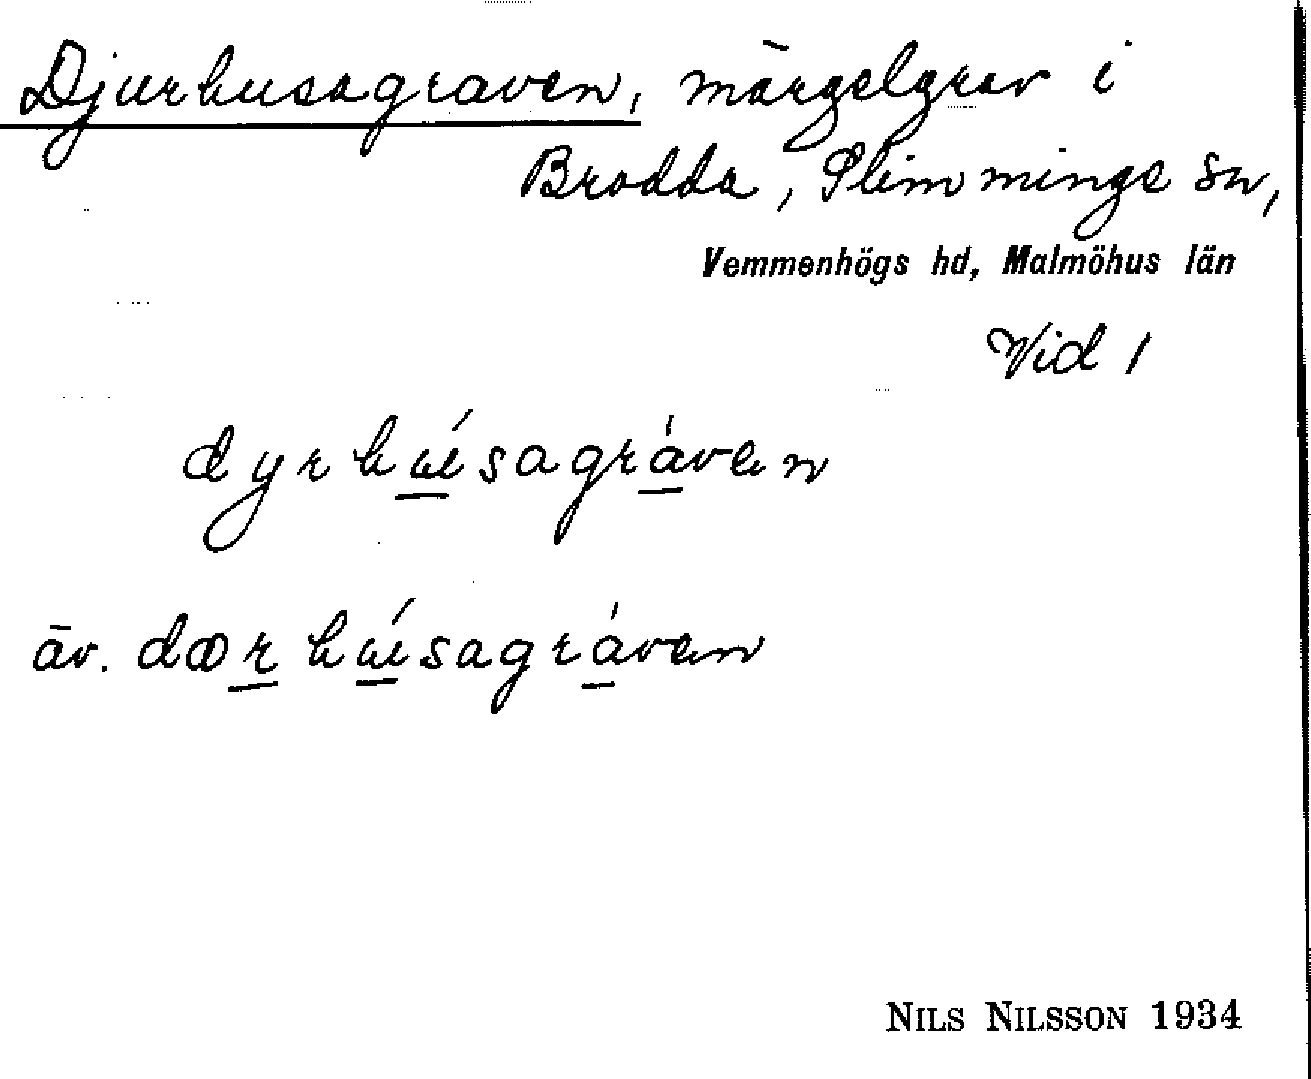 Djurhusagraven, märgelgrav i
Brodda, Slimminge sn,
Vemmenhögs hd, Malmöhus län
Vid 1
dyrhúsagráven
äv. dærhúsagráven
NILS NILSSON 1934